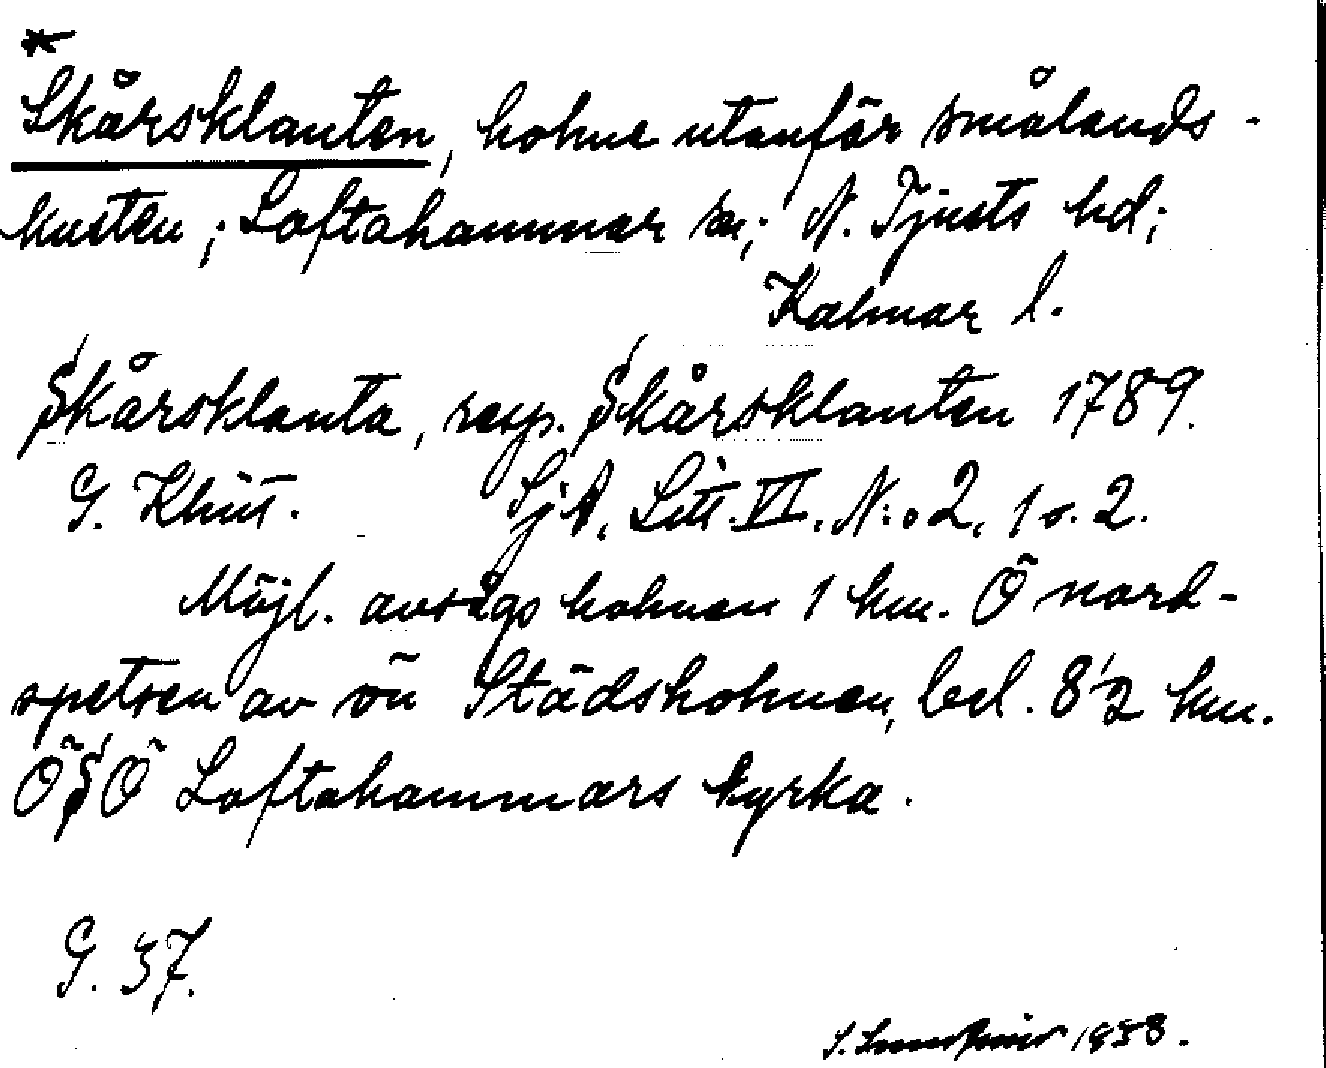 *
Skårsklanten, holme utanför smålands-
kusten; Loftahammar sn; N. Tjusts hd;
Kalmar l.
Skårsklanta, resp. Skårsklanten 1789.
G. Klint. SjA, Litt. VI. N:o 2, 1 o. 2.
Möjl. avsågs holmen 1 km. Ö nord-
spetsen av ön Städsholmen, bel. 8½ km.
ÖSÖ Loftahammars kyrka.
G. 37.
S. 1938.